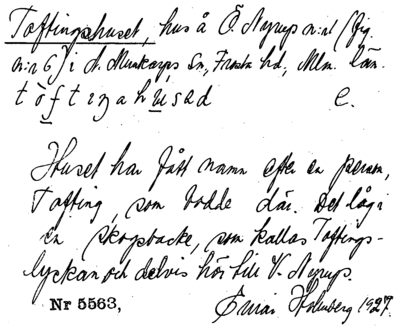 Toftingshuset, hus å Ö. Nyrup n:r 1 (fig.
n:r 6) i N. Munkarps Sn, Frosta hd, Mlm. län.
tòftıŋahʉsəd e.
Huset har fått namn efter en person,
Tofting, som bodde där. Det låg i
en skogsbacke, som kallas Toftings-
lyckan och delvis hör till V. Nyrup.
Nr 5563, Holmberg 1927.